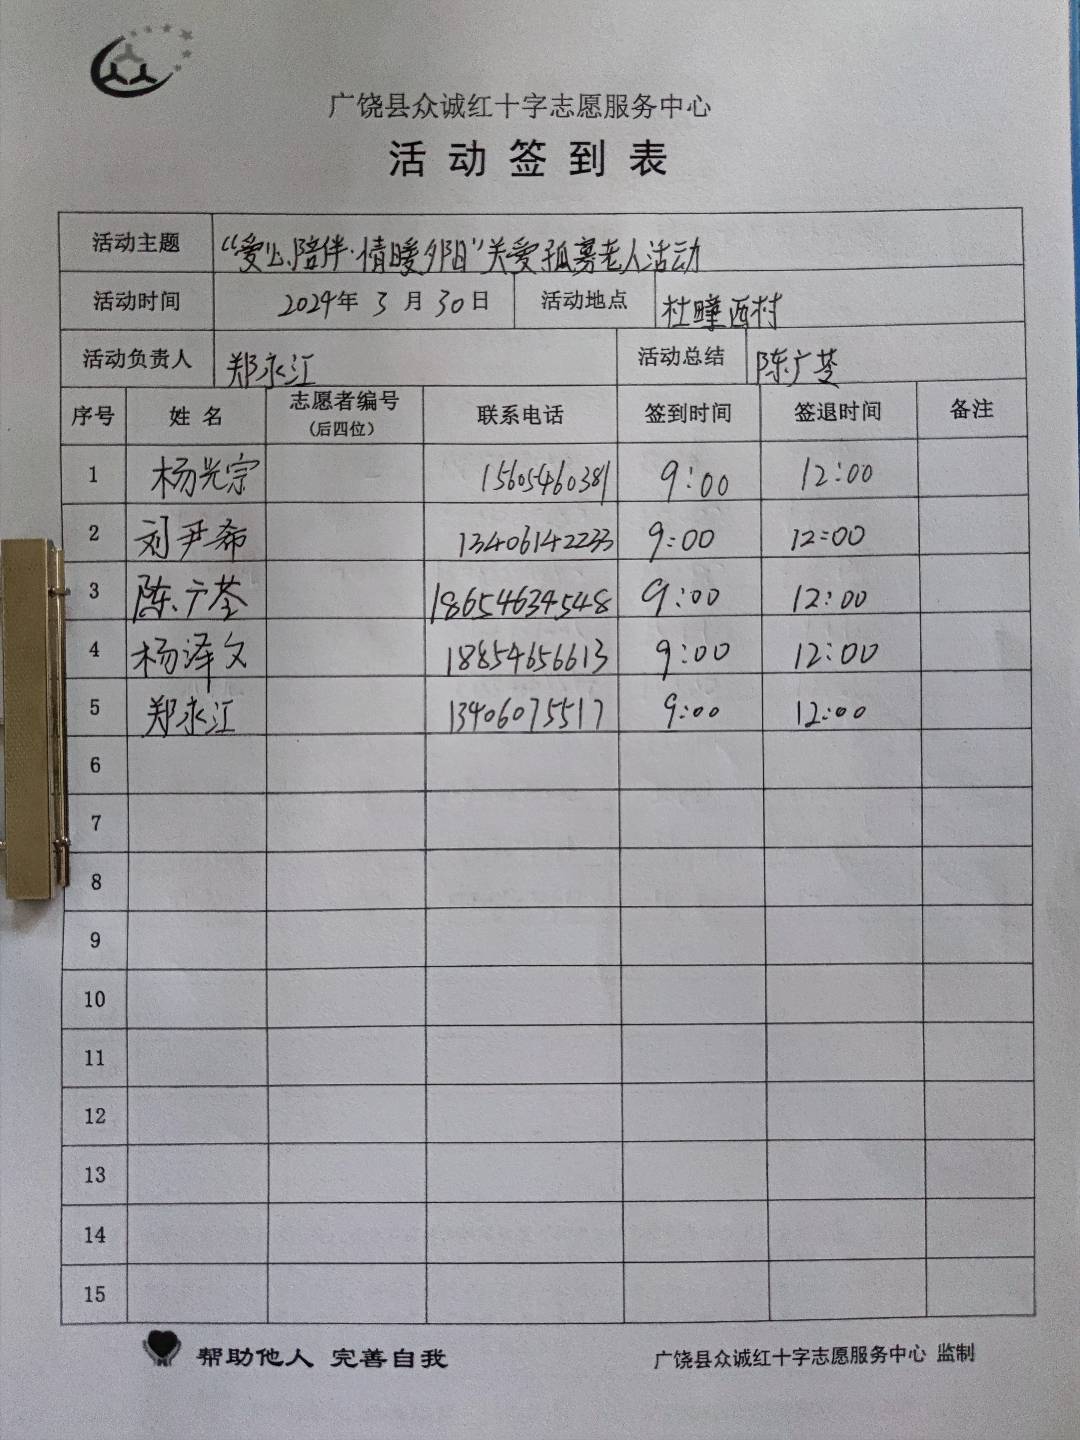 广饶县众诚红十字志愿服务中心
活动签到表
活动主题 “爱心陪伴·情暖夕阳”关爱孤寡老人活动
活动时间 2024年 3月 30日 活动地点 杜疃西村
活动负责人 郑永江 活动总结 陈广荃
序号 姓名 志愿者编号 (后四位) 联系电话 签到时间 签退时间 备注
1 杨光宗 15605460381 9:00 12:00
2 刘尹希 13406142233 9:00 12:00
3 陈广荃 18654634548 9:00 12:00
4 杨泽文 18854656613 9:00 12:00
5 郑永江 13406075517 9:00 12:00
6
7
8
9
10
11
12
13
14
15
帮助他人 完善自我 广饶县众诚红十字志愿服务中心 监制